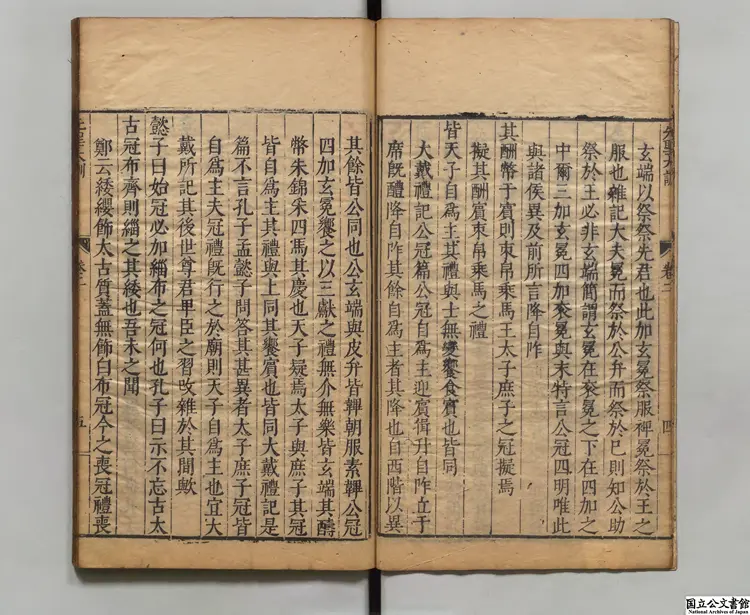 玄端以祭祭先君也此加玄冕祭服裨冕祭於王之
服也雜記大夫冕而祭於公弁而祭於巳則知公助
祭於王必非玄端簡謂玄冕在衮冕之下在四加之
中爾三加玄冕四加衮冕與末特言公冠四明唯此
與諸侯異及前所言降自阼
其酬幣于賓則束帛乗馬王太子庶子之冠擬焉
擬其酬賓束帛乗馬之禮
皆天子自爲主其禮與士無變饗食賓也皆同
大戴禮記公冠篇公冠自爲主迎賓揖升自阼立于
席旣醴降自阼其餘自爲主者其降也自西階以異
卷二
四
其餘皆公同也公玄端與皮弁皆韠朝服素韠公冠
四加玄冕饗之以三獻之禮無介無樂皆玄端其醻
幣朱錦朱四馬其慶也天子疑焉太子與庶子其冠
皆自爲主其禮與士同其饗賓也皆同大戴禮記是
篇不言孔子孟懿子問答其甚異者太子庶子冠皆
自爲主夫冠禮旣行之於廟則天子自爲主也宜大
戴所記其後世尊君甲臣之習攺雜於其閒歟
懿子曰始冠必加緇布之冠何也孔子曰示不忘古太
古冠布齊則緇之其緌也吾未之聞
鄭云緌纓飾太古質蓋無飾白布冠今之喪冠禮喪
五
国立公文書館
National Archives of Japan